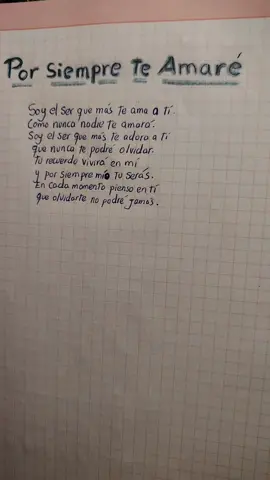 Por Siempre Te Amaré
Soy el ser que más Te ama a Tí.
Como nunca nadie Te amará.
Soy el ser que más Te adora a Tí
que nunca te podré olvidar.
Tu recuerdo vivirá en mí
y por siempre mío Tú serás.
En cada momento pienso en Tí
que olvidarte no podré jamas.